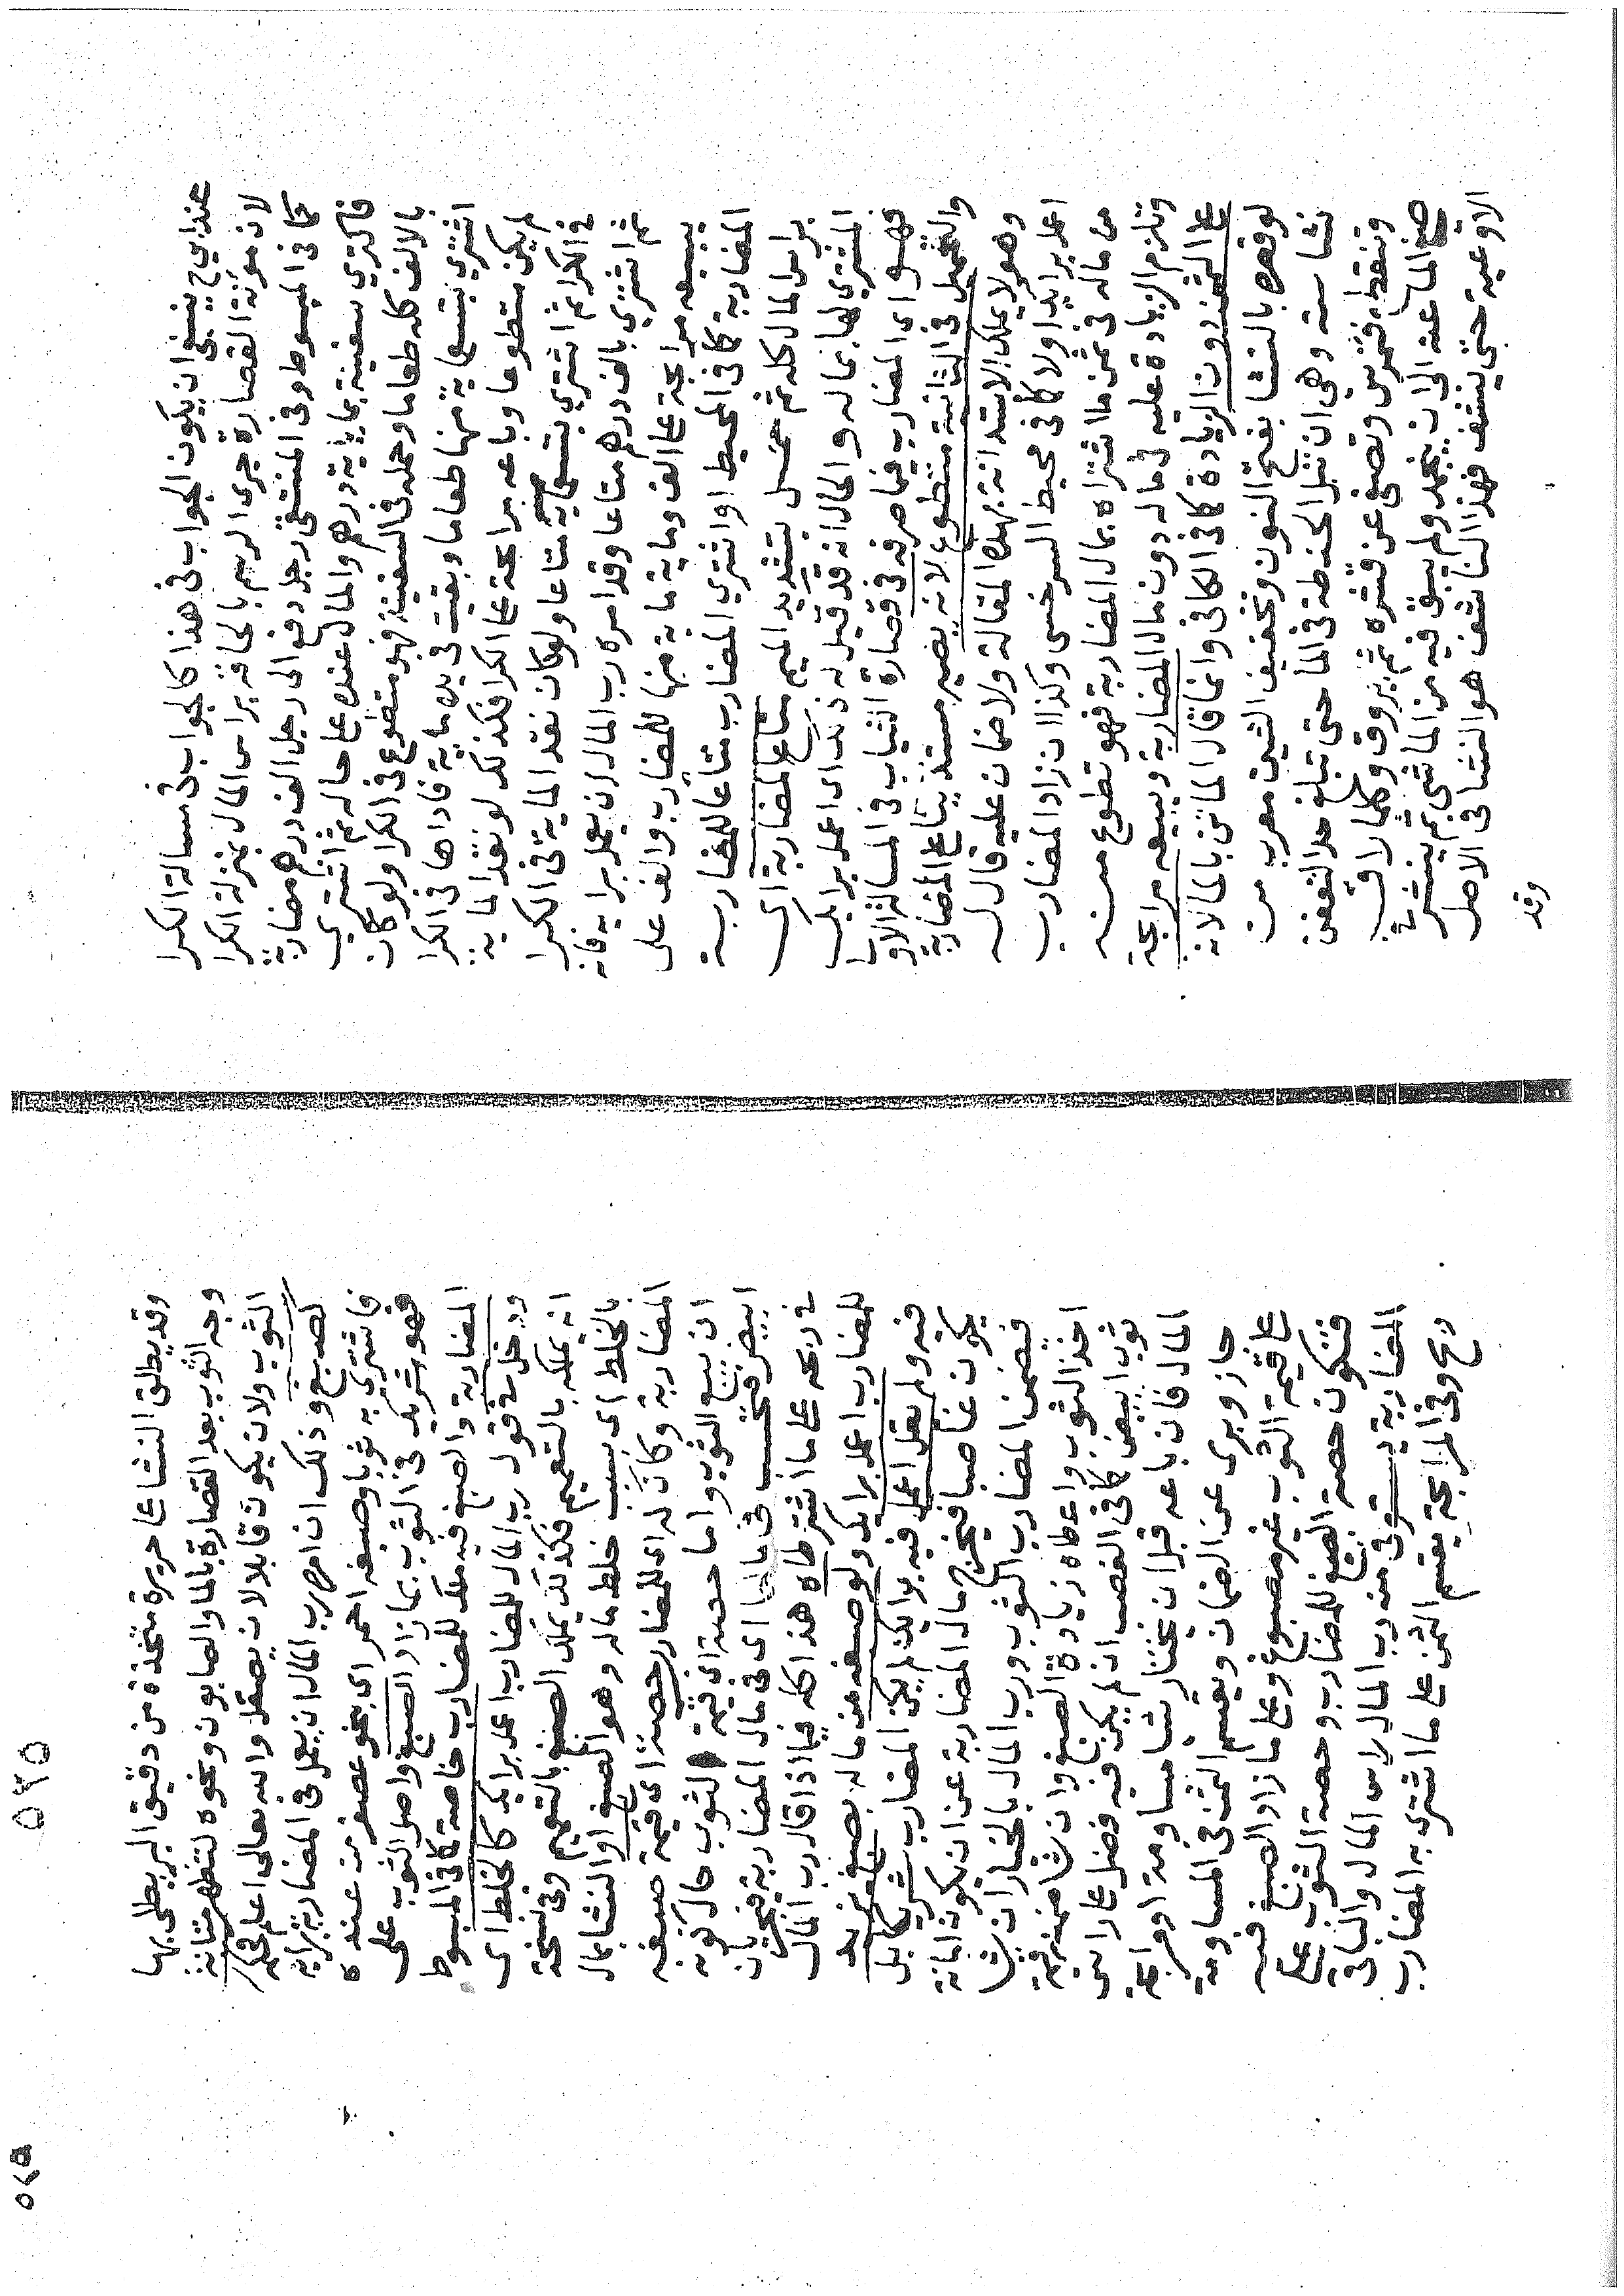 عند ابي ح ينبغي ان يكون الجواب في هذا كالجواب في مسالة الكرا
لان مؤنة القصارة جرى الرسم بالحاقه براس المال بمنزلة الكرا
كما في المبسوط وفي المنتقى رجل دفع الى رجل الف درهم مضاربة
فاكترى سفينة بماية درهم والمال عنده على حاله ثم اشترى
بالالف كله طعاما وحمله في السفينة فهو متطوع في الكرا ولو كان
اشترى بتسعماية منها طعاما وبقيت في يده ماية فاداها في الكرا
لم يكن متطوعا وباعه مرابحة على الكرا فكذلك لو نقد الماية
في الكرا ثم اشترى بتسعماية متاعا ولو كان نقد الماية في الكرا
ثم اشترى بالف درهم متاعا وقد امره رب المال ان يعمل برايه فانه
يبيعه مرابحة على الف وماية ماية منها للمضارب والف على
المضاربة كما في المحيط او اشترى المضارب متاعا للمضاربة
براس المال كله ثم حمل بتشديد الميم متاع المضاربة اي
المشترى لها بماله والحال انه قد قيل له ذلك اى اعمل برايك
فهو اى المضارب فيما صرفه في قصارة الثياب في المسالة الاولى
والحمل في الثانية متطوع لانه يصير مستدينا على المضاربة
وهو لا يملك الاستدانة بهذه المقالة ولا ضمان عليه قال له
اعمل برايك او لا كما في محيط السرخسى وكذا ان زاد المضارب
من ماله في ثمن ما اشتراه بمال المضاربة فهو تطوع منه
وتلزم الزيادة عليه في ماله دون مال المضاربة ويبيعه مرابحة
على الثمن دون الزيادة كما في الكافى وانما قال الماتن بالمالانه
لو قصره بالنشا بفتح النون وتخفيف الشين معرب من
نشاسته وهي ان تبل الحنطة في الما حتى تبلغ حد التعفن
وتنقط فتمرس وتصفى عن قشره ثم يروق وكلما لاق
صفى الما عنه الى ان يجمد ولم يبق فيه من الما شى ثم ينشر في
الاوعية حتى ينشف فهذا الناشف هو النشا في الاصل
وقد
وقد يطلق النشا على حريرة متخذة من دقيق البر يطلى بها
وجه الثوب بعد القصارة بالما والصابون ونحوه لتظهر متانة
الثوب ولان يكون قابلا لان يصقل والله تعالى اعلم فحكمه
كصبغ وذلك ان امر رب المال ان يعمل في المضاربة برايه
فاشترى به ثوبا وصبغه احمر اى بنحو عصفر من عنده
فهو شريك في الثوب بما زاد الصبغ واصل الثوب على
المضاربة والصبغ فيه ملك للمضارب خاصة كما في المبسوط
ودخل في قول رب المال للمضارب اعمل برايك كالخلط اى
انه يملكه بالتعميم فكذلك يملك الصبغ بالتعميم وفي نسخة
بالخلط اى بسبب خلط ماله وهو الصبغ او النشا بمال
المضاربة وكان له اى للمضارب حصة اى قيمة صبغه
ان بيع الثوب واما حصة اى قيمة الثوب حال كونه
ابيض فتحسب في مالها اى في مال المضاربة فيجرى بان
في ربحه على ما اشترطاه هذا كله فيما اذا قال رب المال
للمضارب اعمل برايك ولو صبغه من ماله بصبغ يزيد
فيه ولم يقل اعمل فيه برايك لم يكن المضارب شريكا بل
يكون غاصبا فيخرج مال المضاربة عن ان يكون امانة
فيضمن المضارب الثوب ورب المال بالخيار ان شا
اخذ الثوب واعطاه زيادة الصبغ وان شا ضمنه قيمة
ثوب ابيض كما في الغصب ان لم يكن فيه فضل على راس
المال فان باعه قبل ان يختار شيا مساومة او مرابحة
جاز وبرى عن الضمان ويقسم الثمن في المساومة
على قيمة الثوب غير مصبوغ وعلى ما زاد الصبغ فيه
فتكون حصة الصبغ للمضارب وحصة الثوب على
المضاربة يستوفى منه رب المال راس المال والباقى
ربح وفى المرابحة يقسم الثمن على ما اشترى به المضارب
٥٢٥
٥٢٥